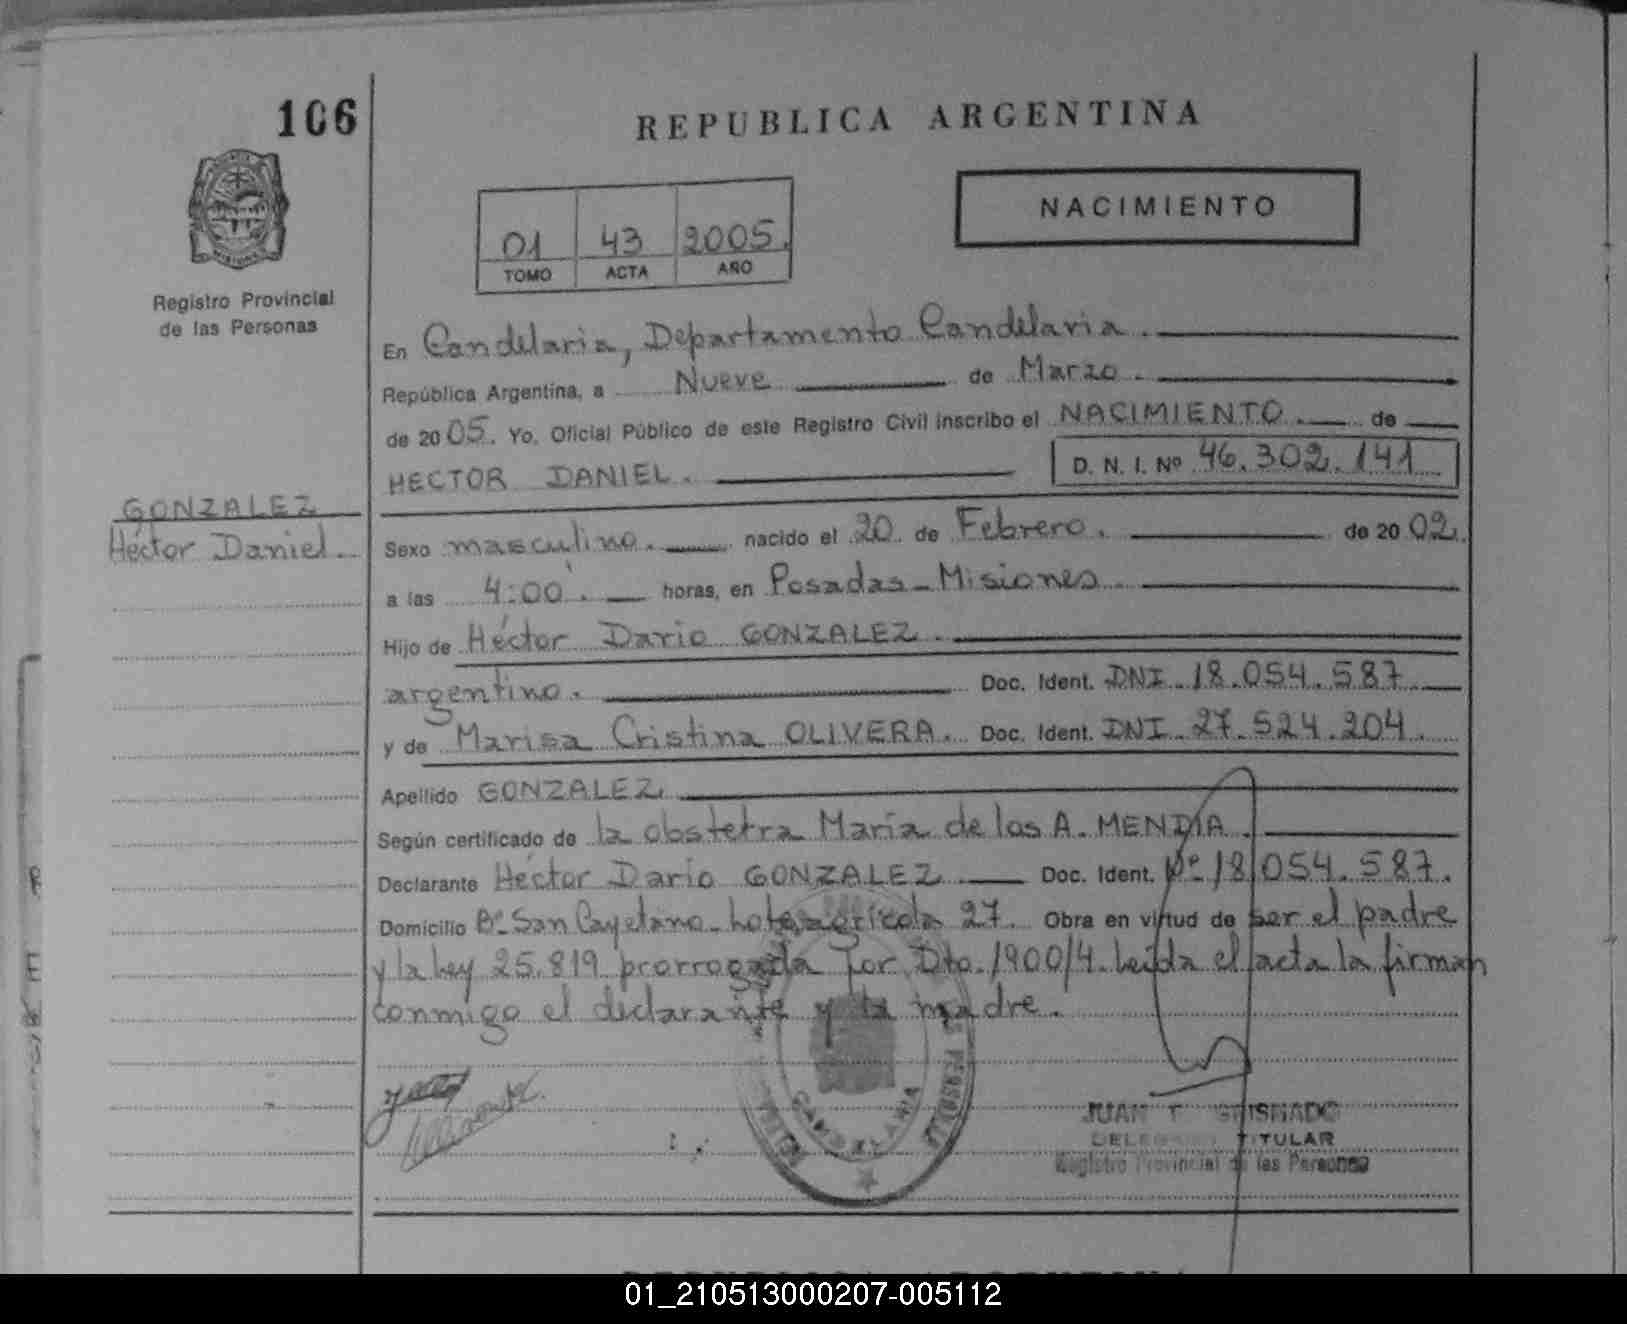 106
REPUBLICA ARGENTINA
NACIMIENTO
01 43 2005.
TOMO ACTA AÑO
Registro Provincial
de las Personas
En Candelaria, Departamento Candelaria.
República Argentina, a Nueve de Marzo.
de 2005. Yo, Oficial Público de este Registro Civil inscribo el NACIMIENTO. de
HECTOR DANIEL. D. N. I. Nº 46.302.141
GONZALEZ
Héctor Daniel.
Sexo masculino. nacido el 20 de Febrero. de 2002.
a las 4:00'. horas, en Posadas-Misiones
Hijo de Héctor Dario GONZALEZ.
argentino. Doc. Ident. DNI 18.054.587
y de Marisa Cristina OLIVERA. Doc. Ident. DNI 27.524.204.
Apellido GONZALEZ.
Según certificado de la obstetra María de los A. MENDIA.
Declarante Héctor Darío GONZALEZ Doc. Ident. Nº 18.054.587.
Domicilio Bº San Cayetano-Lote agrícola 27. Obra en virtud de ser el padre
y la Ley 25.819 prorrogada por Dto. 1900/4. Leída el acta la firman
conmigo el declarante y la madre.
CANDELARIA
JUAN
TITULAR
Registro Provincial de las Personas
01_210513000207-005112